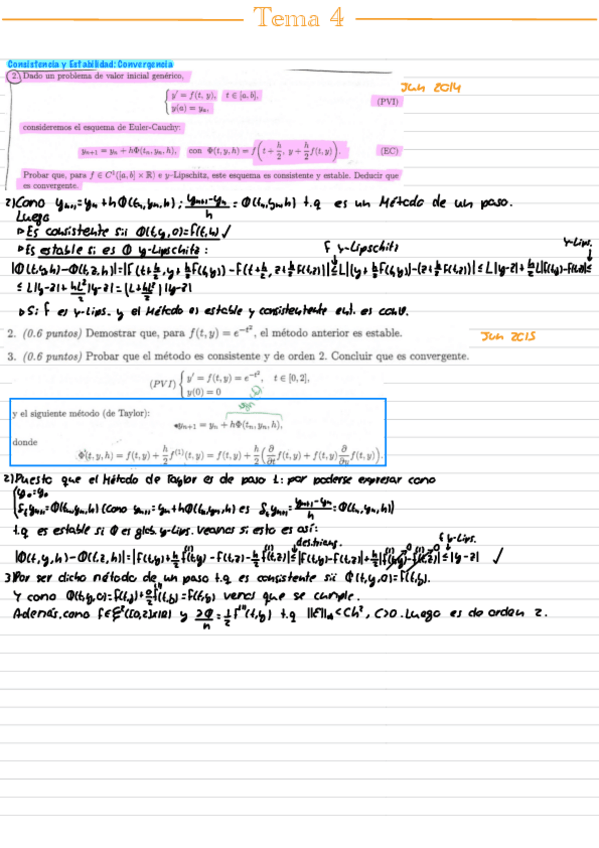 Tema 4
Consistencia y Estabilidad: Convergencia
2. Dado un problema de valor inicial genérico,
{ y' = f(t, y), t ∈ [a, b],
y(a) = yₐ,
(PVI)
Jun 2014
consideremos el esquema de Euler-Cauchy:
yₙ₊₁ = yₙ + hΦ(tₙ, yₙ, h), con Φ(t, y, h) = f(t + h/2, y + h/2 f(t, y)). (EC)
Probar que, para f ∈ C¹([a, b] × ℝ) e y-Lipschitz, este esquema es consistente y estable. Deducir que
es convergente.
2) Como yₙ₊₁=yₙ+hΦ(tₙ,yₙ,h); (yₙ₊₁-yₙ)/h = Φ(tₙ,yₙ,h) t.q es un Método de un paso.
Luego
▹ Es consistente sii Φ(t,y,0)=f(t,y) ✓
▹ Es estable si es Φ y-Lipschitz:
f y-Lipschitz
y-Lips.
|Φ(t,y,h)-Φ(t,z,h)|=|f(t+h/2,y+h/2 f(t,y))-f(t+h/2,z+h/2 f(t,z))|≤L|(y+h/2 f(t,y))-(z+h/2 f(t,z))|≤L|y-z|+h/2 L|f(t,y)-f(t,z)|≤
≤L|y-z|+hL²/2|y-z|=(L+hL²/2)|y-z|
▹ Si f es y-Lips. y el Método es estable y consistentente ent. es conv.
2. (0.6 puntos) Demostrar que, para f(t, y) = e^(-t²), el método anterior es estable.
Jun 2015
3. (0.6 puntos) Probar que el método es consistente y de orden 2. Concluir que es convergente.
(PVI) { y' = f(t, y) = e^(-t²), t ∈ [0, 2],
y(0) = 0
y el siguiente método (de Taylor):
yₙ₊₁ = yₙ + hΦ(tₙ, yₙ, h),
donde
Φ(t, y, h) = f(t, y) + h/2 f⁽¹⁾(t, y) = f(t, y) + h/2 (∂/∂t f(t, y) + f(t, y) ∂/∂y f(t, y)).
2) Puesto que el Método de Taylor es de paso 1: por poderse expresar como
{ y₀=y₀
Sₕyₙ₊₁=Φ(tₙ,yₙ,h) (como yₙ₊₁=yₙ+hΦ(tₙ,yₙ,h) es Sₕyₙ₊₁=(yₙ₊₁-yₙ)/h=Φ(tₙ,yₙ,h))
t.q es estable si Φ es glob. y-Lips. Veamos si esto es así:
des.triang.
f y-Lips.
|Φ(t,y,h)-Φ(t,z,h)|=|f(t,y)+h/2 f⁽¹⁾(t,y)-f(t,z)-h/2 f⁽¹⁾(t,z)|≤|f(t,y)-f(t,z)|+h/2|f⁽¹⁾(t,y)-f⁽¹⁾(t,z)|≤|y-z| ✓
3) Por ser dicho método de un paso t.q es consistente sii Φ(t,y,0)=f(t,y).
Y como Φ(t,y,0)=f(t,y)+0/2 f⁽¹⁾(t,y)=f(t,y) vemos que se cumple.
Además, como
t.q
C>0. Luego es de orden 2.